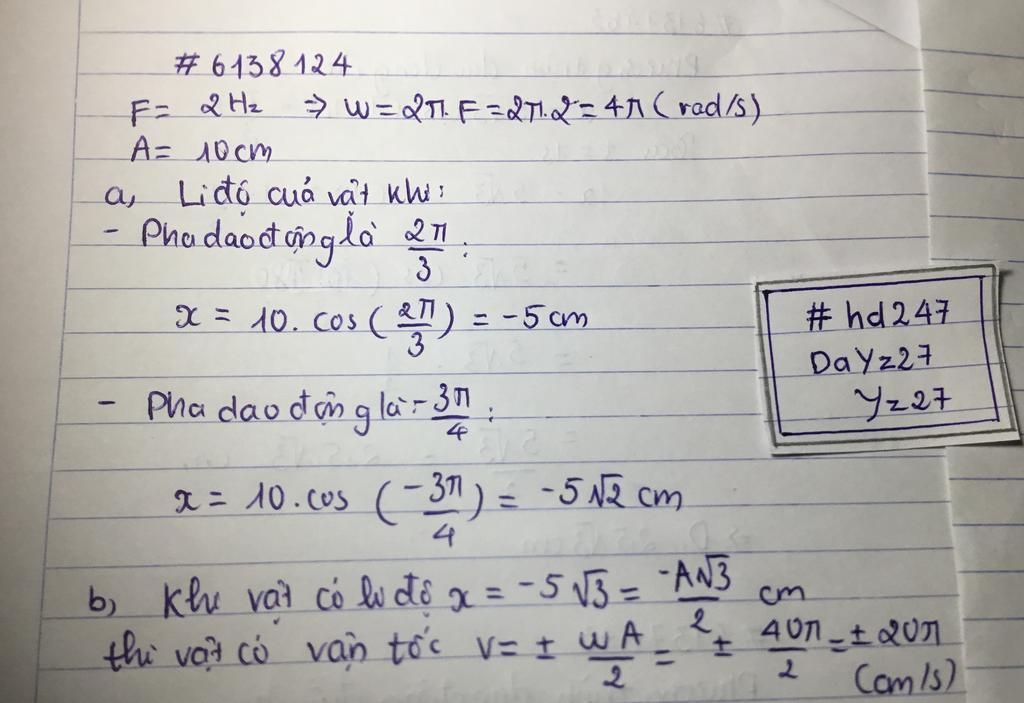 # 6138124
F = 2 Hz ⇒ W = 2π. F = 2π.2 = 4π ( rad/s)
A = 10 cm
a, Li độ của vật khi:
- Pha dao động là 2π/3 :
x = 10. cos ( 2π/3 ) = -5 cm
- Pha dao động là - 3π/4 :
x = 10. cos ( -3π/4 ) = -5√2 cm
b, Khi vật có li độ x = -5√3 = -A√3/2 cm
thì vật có vận tốc V = ± WA/2 = ± 40π/2 = ± 20π
(cm/s)
# hd247
DaYz27
Yz27